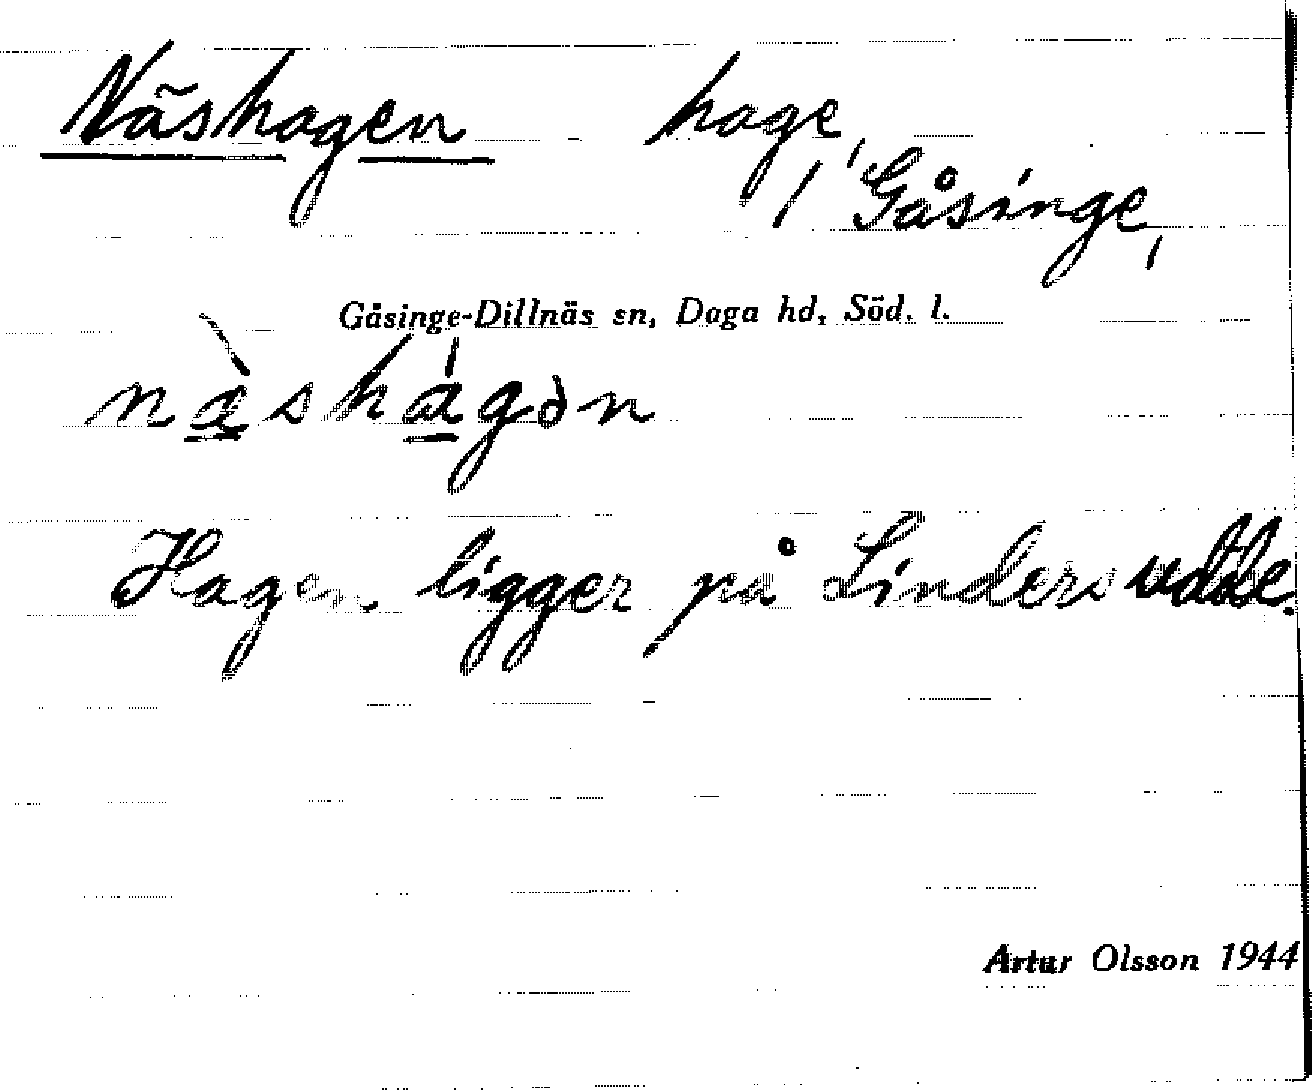 Näshagen hage,
/ Gåsinge,
Gåsinge-Dillnäs sn, Daga hd, Söd. l.
næ̀shágən
Hagen ligger på Lindersudde.
Artur Olsson 1944